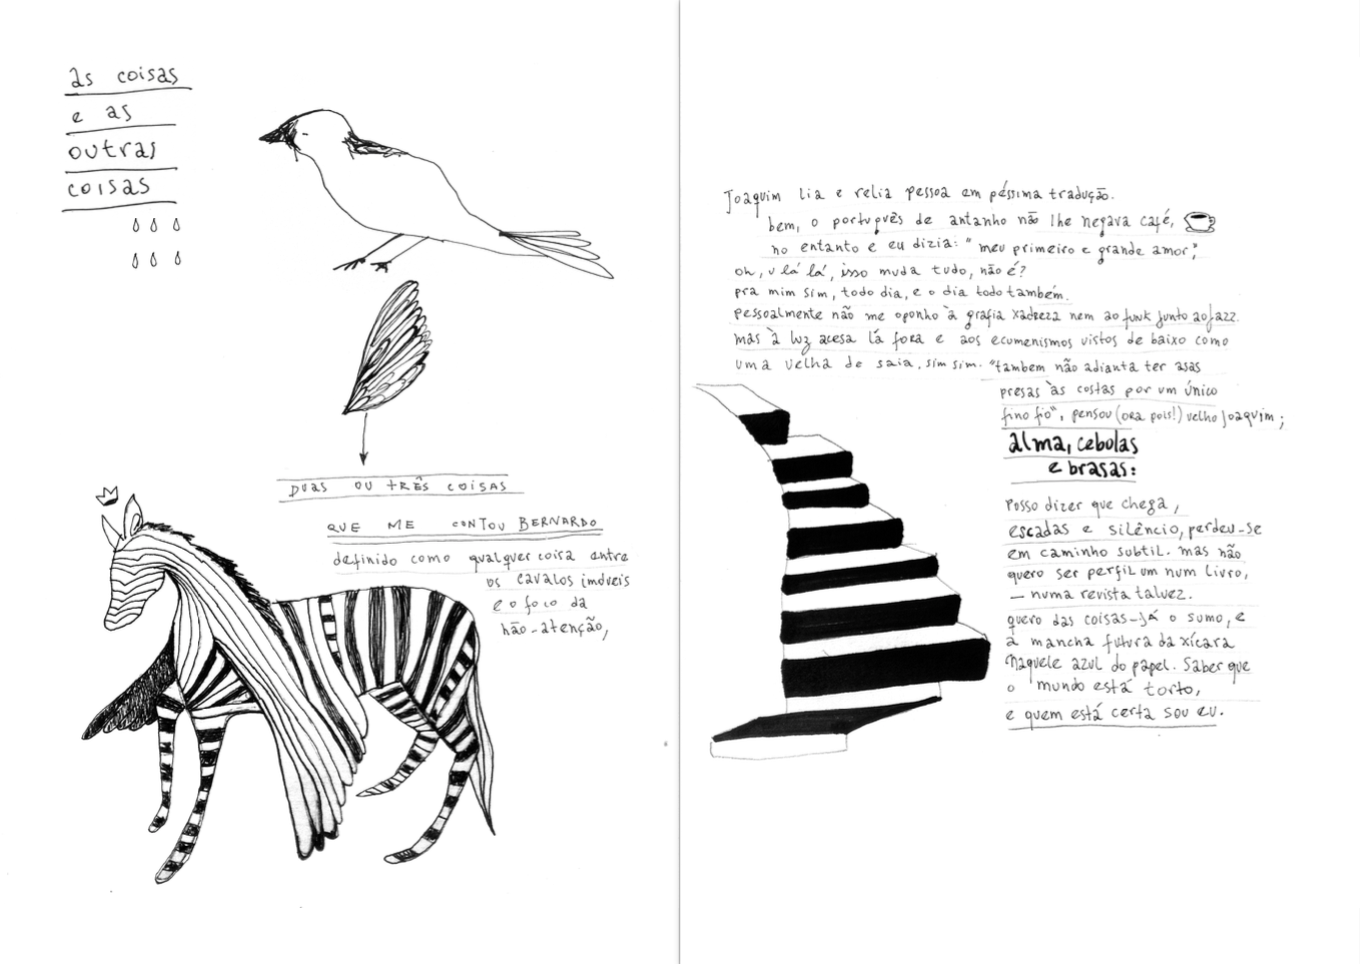 as coisas
e as
outras
coisas
DUAS OU TRÊS COISAS
QUE ME CONTOU BERNARDO
definido como qualquer coisa entre
os cavalos imóveis
e o foco da
não-atenção,
Joaquim lia e relia pessoa em péssima tradução.
bem, o português de antanho não lhe negava café,
no entanto e eu dizia: "meu primeiro e grande amor",
oh, u lá lá, isso muda tudo, não é?
pra mim sim, todo dia, e o dia todo também.
pessoalmente não me oponho à grafia xadreza nem ao funk junto ao jazz.
mas à luz acesa lá fora e aos ecumenismos vistos de baixo como
uma velha de saia, sim sim. "também não adianta ter asas
presas às costas por um único
fino fio", pensou (ora pois!) velho Joaquim;
alma, cebolas
e brasas:
Posso dizer que chega,
escadas e silêncio, perdeu-se
em caminho subtil. mas não
quero ser perfil um num livro,
— numa revista talvez.
quero das coisas-já o sumo, e
a mancha futura da xícara
naquele azul do papel. Saber que
o mundo está torto,
e quem está certa sou eu.